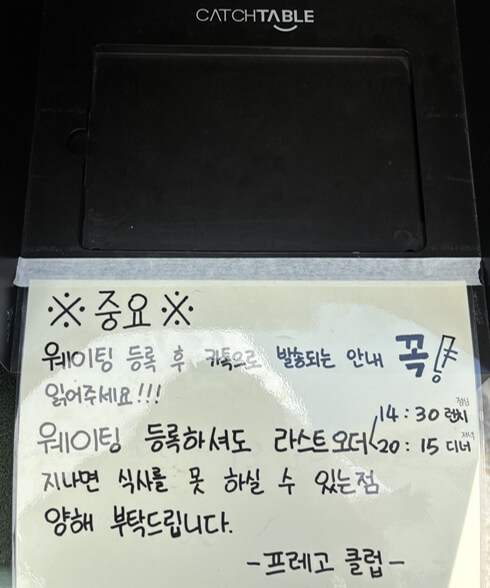 CATCHTABLE
※ 중요 ※
웨이팅 등록 후 카톡으로 발송되는 안내 꼭!
읽어주세요!!!
웨이팅 등록하셔도 라스트오더 14:30 런치 점심
20:15 디너 저녁
지나면 식사를 못 하실 수 있는점
양해 부탁드립니다.
-프레고 클럽-